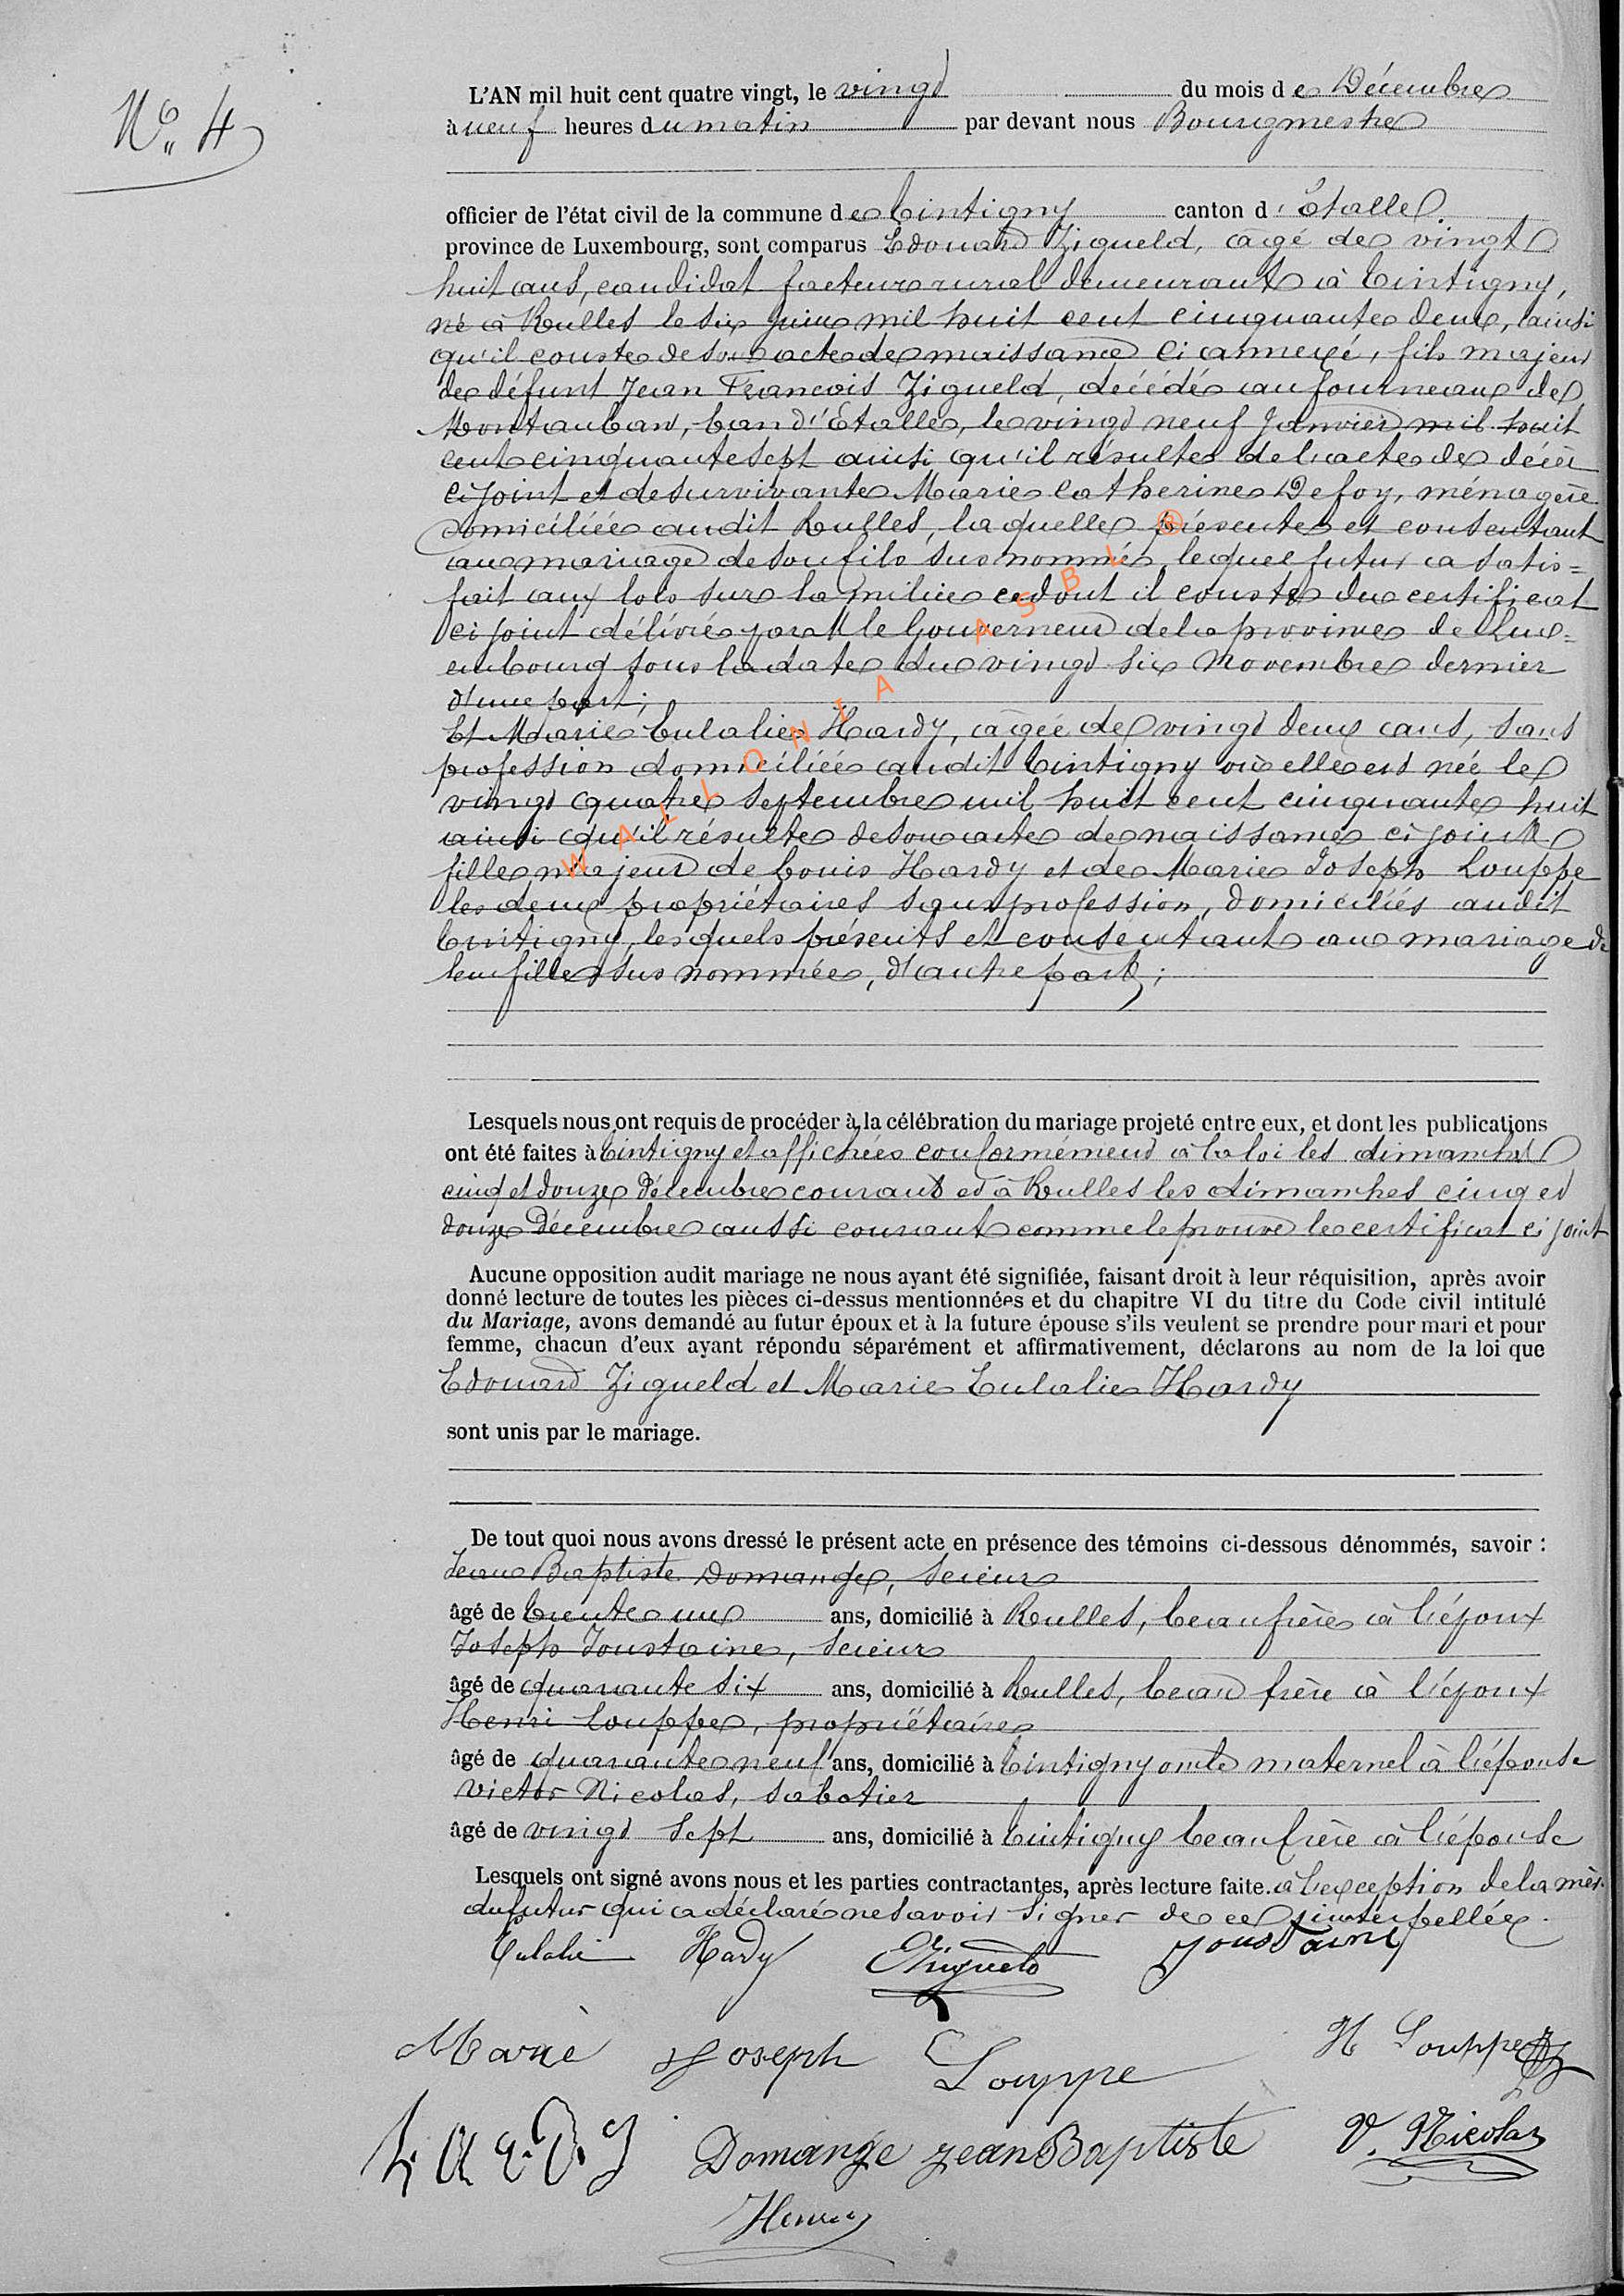 N° 4
L'AN mil huit cent quatre vingt, le vingt du mois de Décembre
à neuf heures du matin par devant nous Bourgmestre
officier de l'état civil de la commune de Tintigny canton d'Etalle.
province de Luxembourg, sont comparus Edouard Zigueld, âgé de vingt
huit ans, candidat facteur rural demeurant à Tintigny,
né à Rulles le six juin mil huit cent cinquante deux, ainsi
qu'il conste de son acte de naissance ci annexé, fils majeur
de défunt Jean François Zigueld, décédé au fourneau de
Montauban, ban d'Etalle, le vingt neuf Janvier mil huit
cent cinquante sept ainsi qu'il résulte de l'acte de décès
ci joint et de survivante Marie Catherine Defoy, ménagère
domiciliée audit Rulles, laquelle présente et consentant
au mariage de son fils sus nommé, lequel futur a satis=
fait aux lois sur la milice ce dont il conste du certificat
ci joint délivré par M le Gouverneur de la province de Lux=
embourg sous la date du vingt six Novembre dernier
d'une part;
Et Marie Eulalie Hardy, âgée de vingt deux ans, sans
profession domiciliée audit Tintigny où elle est née le
vingt quatre Septembre mil huit cent cinquante huit
ainsi qu'il résulte de son acte de naissance ci joint
fille majeur de Louis Hardy et de Marie Joseph Louppe
les deux propriétaires sans profession, domiciliés audit
Tintigny, lesquels présents et consentant au mariage de
leur fille sus nommée, d'autre part;
Lesquels nous ont requis de procéder à la célébration du mariage projeté entre eux, et dont les publications
ont été faites à Tintigny et affichées conformément à la loi les dimanches
cinq et douze Décembre courant et à Rulles les dimanches cinq et
douze Décembre aussi courant comme le prouve le certificat ci joint
Aucune opposition audit mariage ne nous ayant été signifiée, faisant droit à leur réquisition, après avoir
donné lecture de toutes les pièces ci-dessus mentionnées et du chapitre VI du titre du Code civil intitulé
du Mariage, avons demandé au futur époux et à la future épouse s'ils veulent se prendre pour mari et pour
femme, chacun d'eux ayant répondu séparément et affirmativement, déclarons au nom de la loi que
Edouard Zigueld et Marie Eulalie Hardy
sont unis par le mariage.
De tout quoi nous avons dressé le présent acte en présence des témoins ci-dessous dénommés, savoir :
Jean Baptiste Domange, Scieur
âgé de trente un ans, domicilié à Rulles, beau frère à l'époux
Joseph Joustaine, Scieur
âgé de quarante six ans, domicilié à Rulles, beau frère à l'époux
Henri Louppe, propriétaire
âgé de quarante neuf ans, domicilié à Tintigny oncle maternel à l'épouse
Victor Nicolas, sabotier
âgé de vingt sept ans, domicilié à Tintigny beau frère à l'épouse
Lesquels ont signé avons nous et les parties contractantes, après lecture faite. à l'exception de la mère
du futur qui a déclaré ne savoir signer de ce interpellée.
Eulalie Hardy EZigueld Joustaine
Marie Joseph Louppe H Louppe
L Hardy Domange jean Baptiste V. Nicolas
Henry
WALLONIA ASBL ®